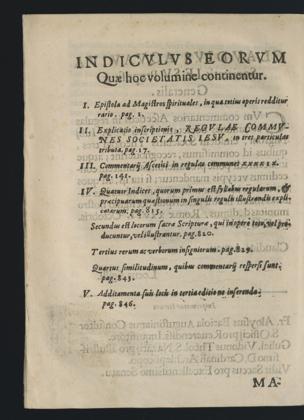 INDICVLVS EORVM
Quæ hoc volumine continentur.
I. Epistola ad Magistros spirituales, in qua totius operis redditur
ratio. pag. 1.
II. Explicatio inscriptionis, REGVLAE COMMV-
NES SOCIETATIS IESV, in tres particulas
tributa. pag. 17.
III. Commentarij Ascetici in regulas communes XXXXIX.
pag. 141.
IV. Quatuor Indices, quorum primus est syllabus regularum, &
præcipuarum quæstionum in singulis regulis illustrandis expli-
catarum: pag. 815.
Secundus est locorum sacræ Scripturæ, qui in opere toto, vel
ducuntur, vel illustrantur. pag. 820.
Tertius rerum ac verborum insigniorum. pag. 829.
Quartus similitudinum, quibus commentarij respersi sunt:
pag. 843.
V. Additamenta suis locis in tertia editione inserenda:
pag. 846.
MA-